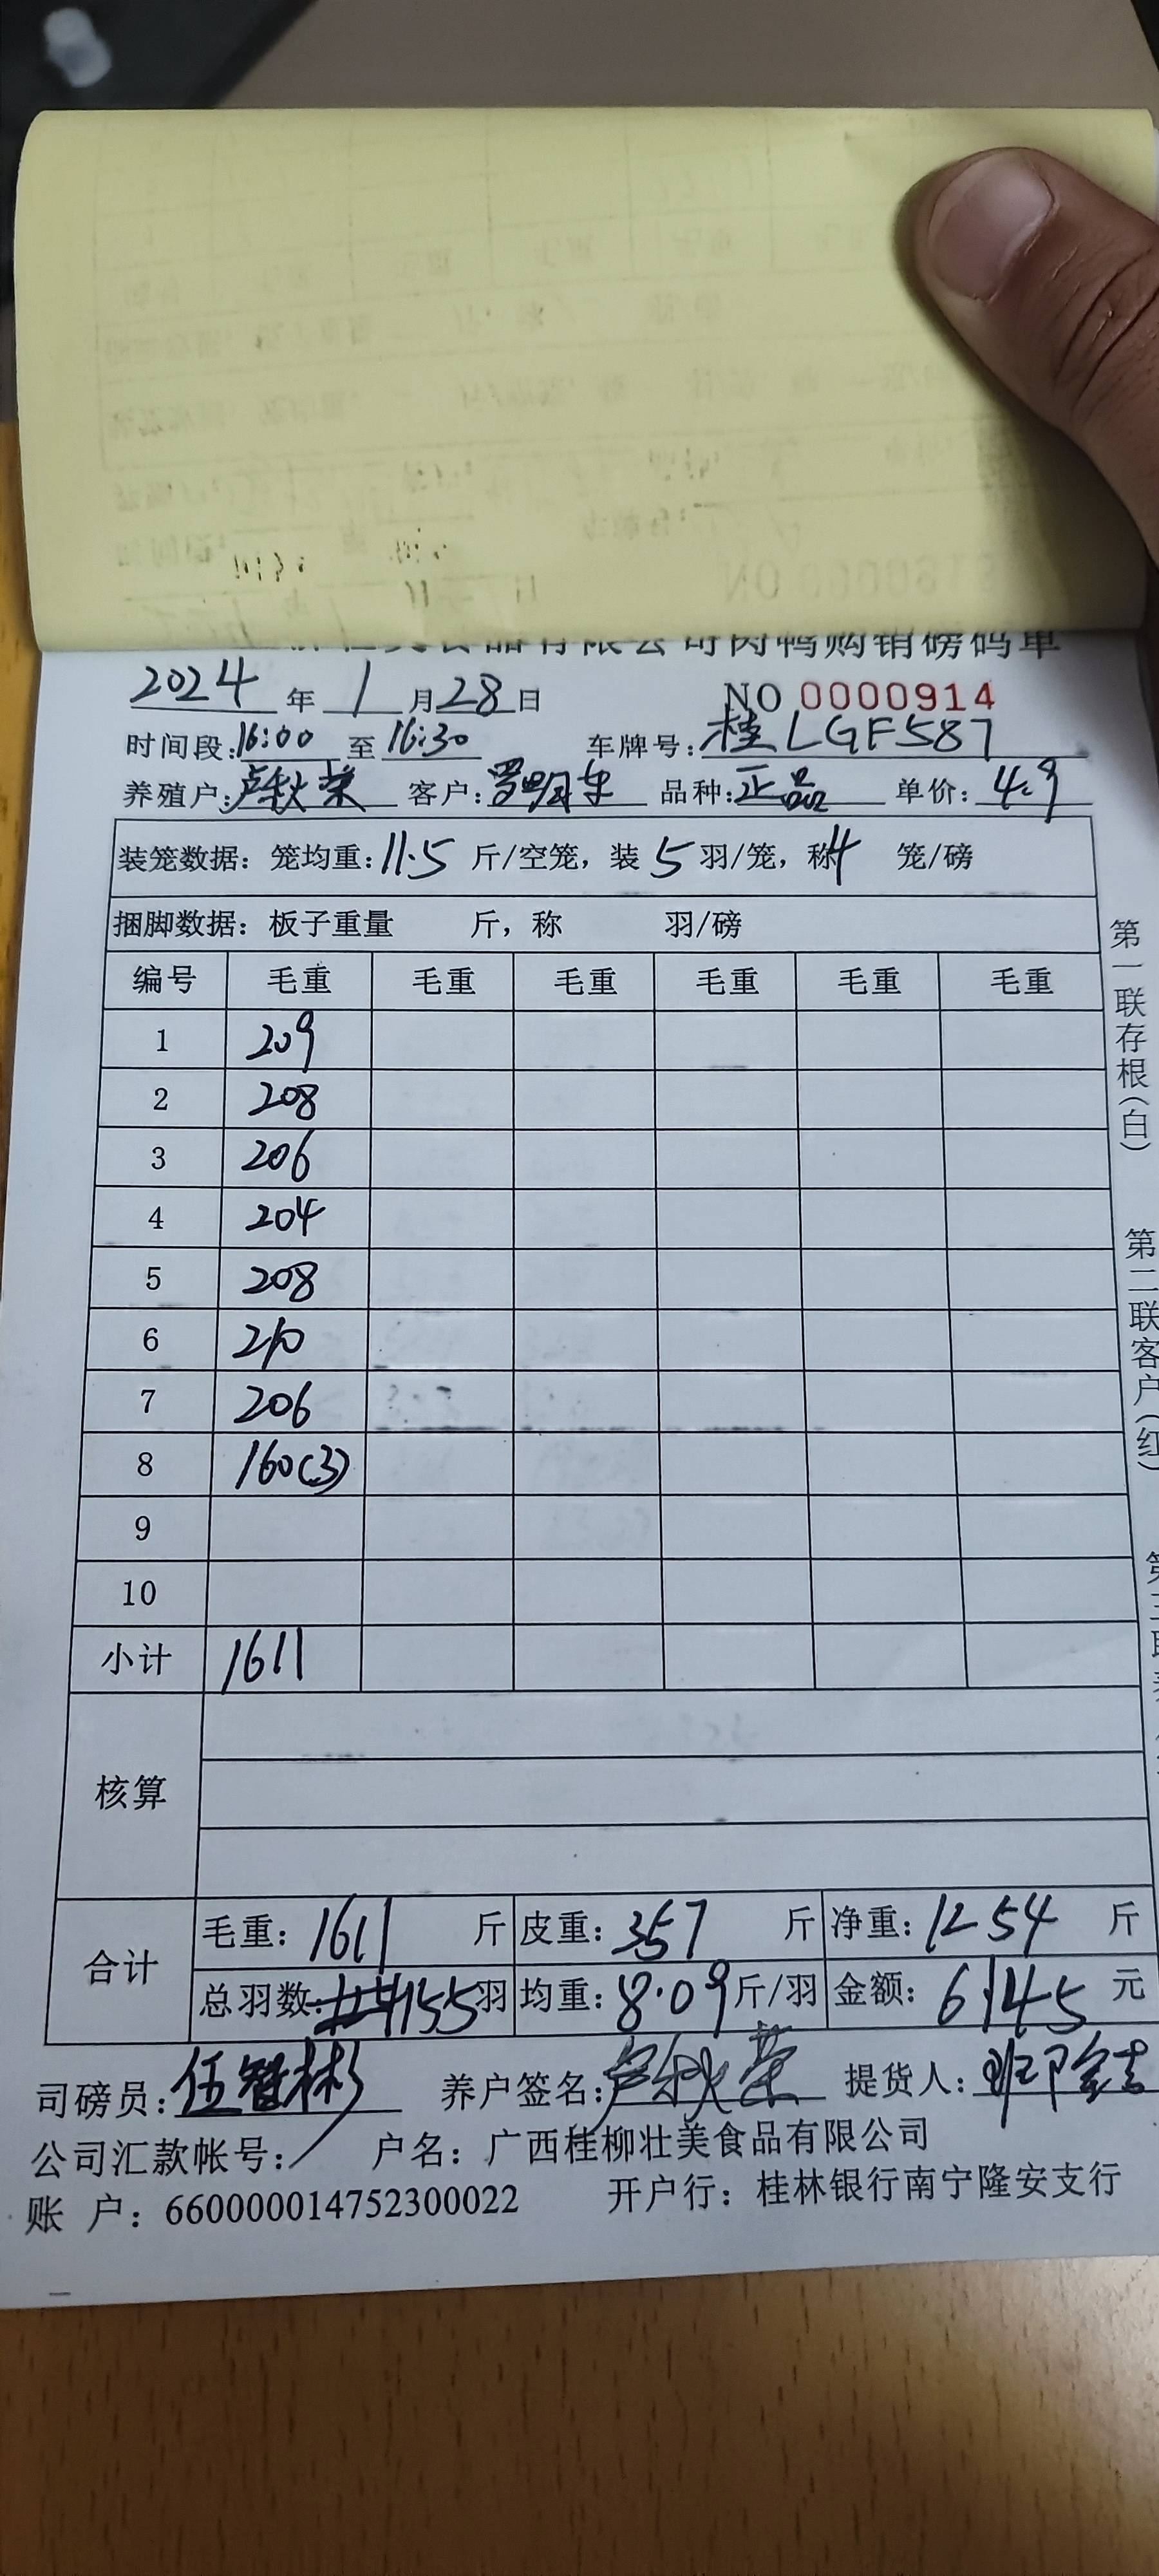 食品有限公司肉鸭购销磅码单
2024年1月28日 NO 0000914
时间段:16:00至16:30 车牌号:桂LGF587
养殖户:卢秋荣 客户:罗明 品种:正品 单价:4.9
装笼数据:笼均重:11.5斤/空笼,装5羽/笼,称4笼/磅
捆脚数据:板子重量 斤,称 羽/磅
编号 毛重 毛重 毛重 毛重 毛重 毛重
1 209
2 208
3 206
4 204
5 208
6 210
7 206
8 160(3)
9
10
小计 1611
核算
合计 毛重:1611斤 皮重:357斤 净重:1254斤
总羽数:155羽 均重:8.09斤/羽 金额:6145元
司磅员:伍智彬 养户签名:卢秋荣 提货人:班
公司汇款帐号: 户名:广西桂柳壮美食品有限公司
账 户:660000014752300022 开户行:桂林银行南宁隆安支行
第一联存根(白)
第二联客户(红)